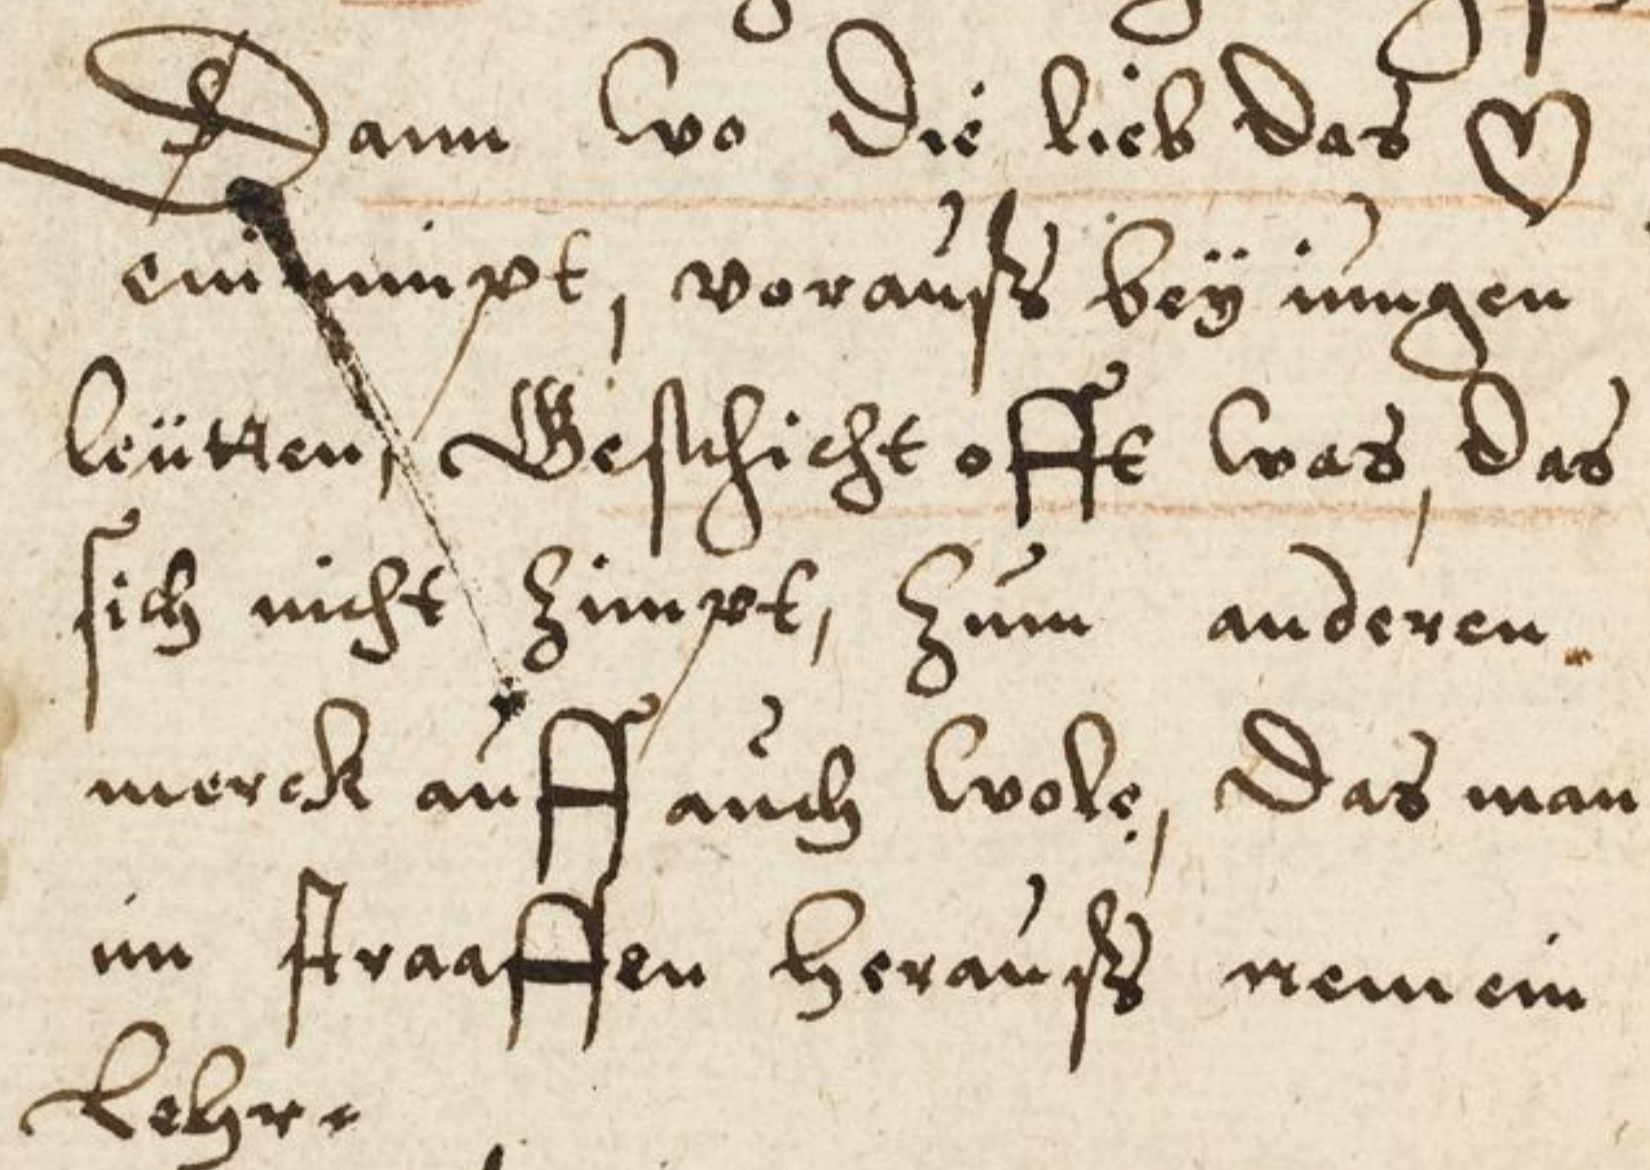 Dann wo die lieb das ♡
einnimpt, vorauß bey iungen
leütten, Geschicht offt was, das
sich nicht zimpt, zum anderen
merck auff auch wole, das man
im straaffen herauß nem ein
Lehr.